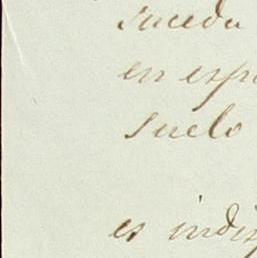 suceda
en esp
suelo
es indis